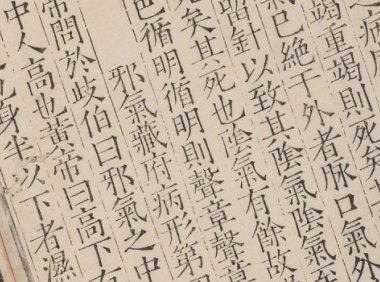 之病
竭重竭則死矣
氣已絕于外者脉口氣外
留針以致其陰氣陰氣至
死矣其死也陰氣有餘故
色循明循明則聲章聲章
邪氣藏府病形第四
常問於歧伯曰邪氣之中
中人高也黃帝曰高下有
身半以下者濕